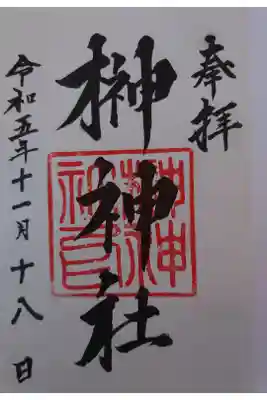 奉拝
榊神社
令和五年十一月十八日